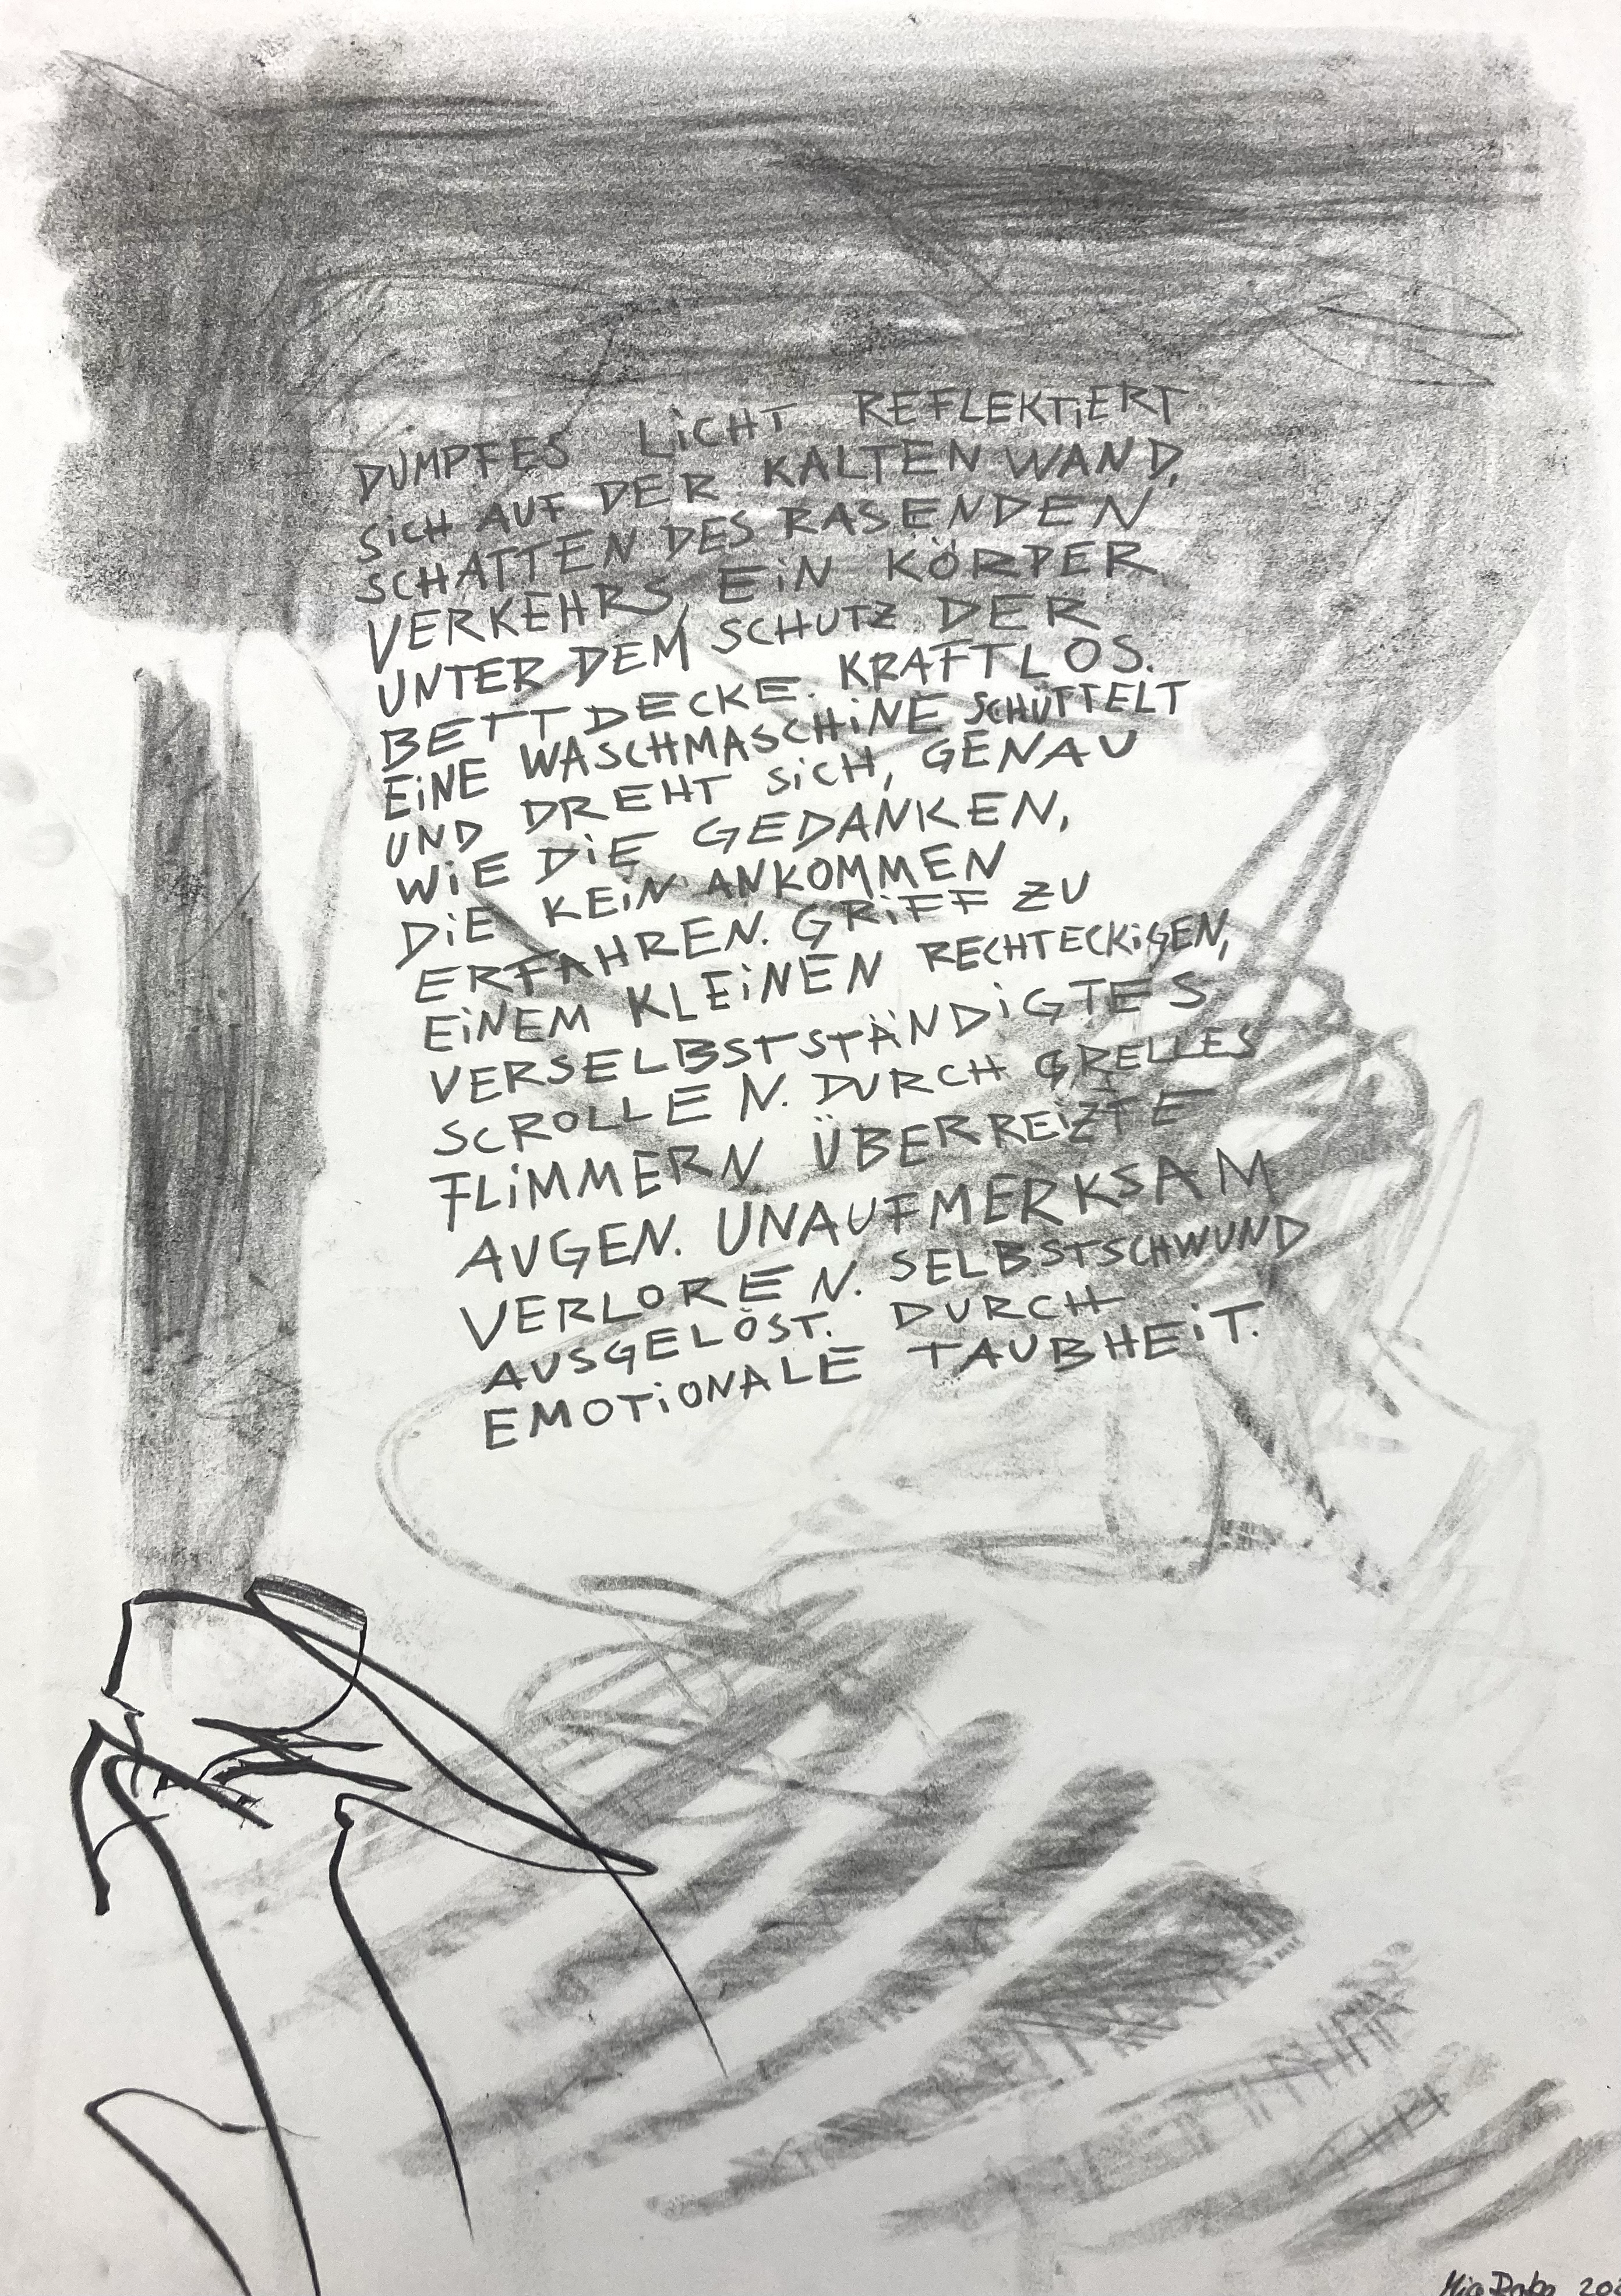 DUMPFES LiCHT REFLEKTiERT
SiCH AUF DER KALTEN WAND,
SCHATTEN DES RASENDEN
VERKEHRS, EiN KÖRPER
UNTER DEM SCHUTZ DER
BETTDECKE. KRAFTLOS.
EiNE WASCHMASCHiNE SCHÜTTELT
UND DREHT SiCH, GENAU
WiE DiE GEDANKEN,
DiE KEiN ANKOMMEN
ERFAHREN. GRiFF ZU
EiNEM KLEiNEN RECHTECKiGEN,
VERSELBSTSTÄNDiGTES
SCROLLEN. DURCH GRELLES
FLiMMERN ÜBERREiZTE
AUGEN. UNAUFMERKSAM
VERLOREN. SELBSTSCHWUND
AUSGELÖST. DURCH
EMOTiONALE TAUBHEiT.